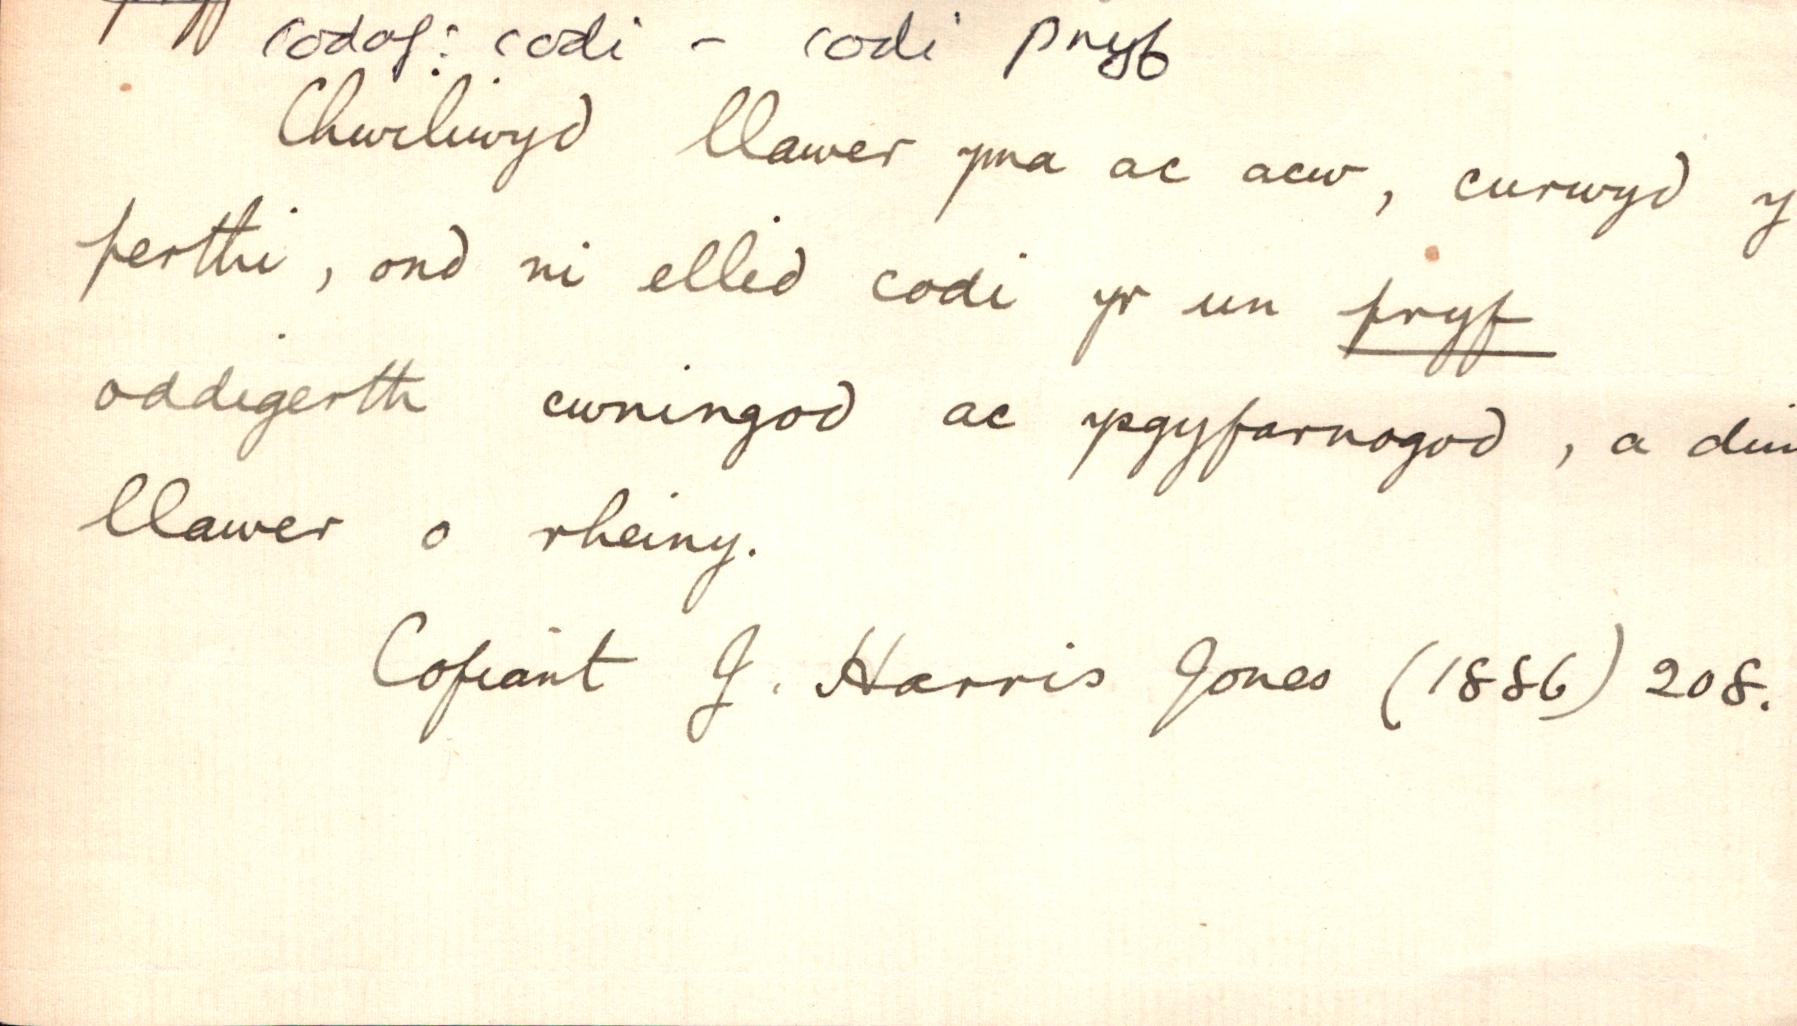 codaf: codi - codi pryf
Chwiliwyd llawer yma ac acw, curwyd y
perthi, ond ni ellid codi yr un pryf
oddigerth cwningod ac ysgyfarnogod, a
llawer o rheiny.
Cofiant J. Harris Jones (1886) 208.